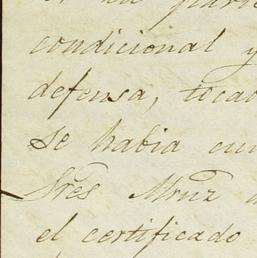 condicional y
defensa, tocad
se habia cum
Sres Mruz a
el certificado